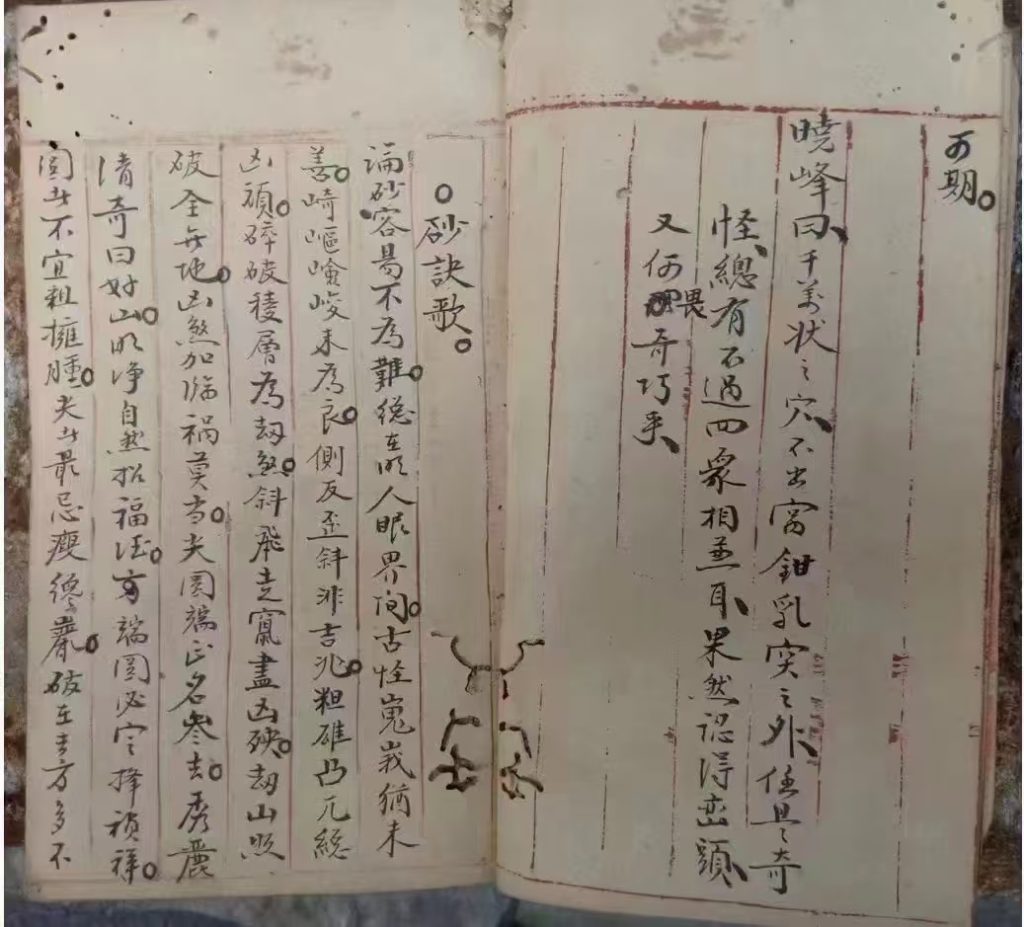 可期。
曉峰曰、千萬状之穴、不出窩鉗乳突之外、任是奇
怪、總有不過四象相兼耳、果然認得巒頭、
又何畏奇巧乎、
○砂訣歌。
論砂容易不為難。總在明人眼界間。古怪嵬峩猶未
善。崎嶇嶮峻未為良。側反歪斜非吉兆。粗雄凸兀總
凶頑。碎破稜層為劫煞。斜飛走竄盡凶殃。劫山照
破全無地。凶煞加临祸莫当。尖圓端正名參去。秀麗
清奇曰好山。明净自然招福德。方端圓必定擇祯祥。
圓女不宜粗擁腫。尖女最忌瘦巉巖。破在去方多不